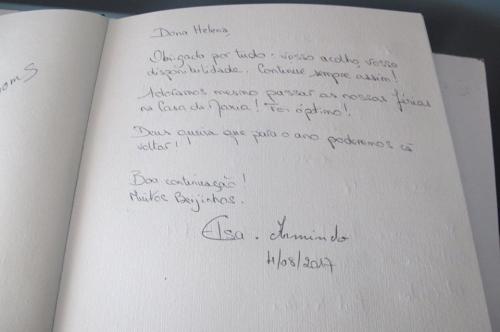 Dona Helena,
Obrigado por tudo: vosso acolho, vossa
disponibilidade. Continue sempre assim!
Adoramos mesmo passar as nossas férias
na Casa da Maria! Foi óptimo!
Deus queira que para o ano poderemos cá
voltar!
Boa continuação!
Muitos Beijinhos.
Elsa. Armindo
11/08/2017